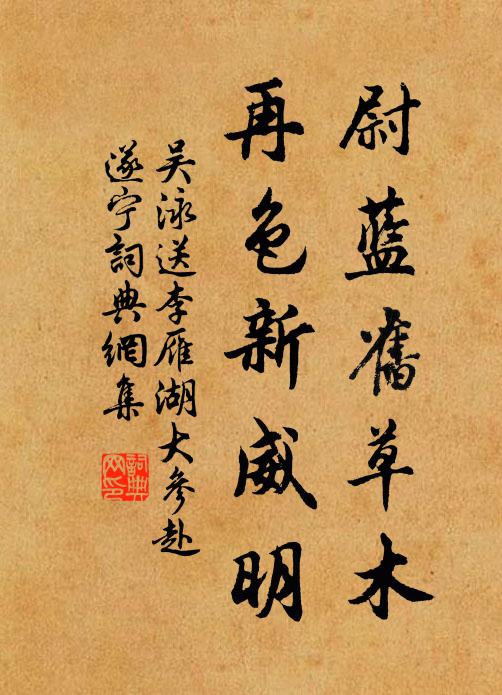 尉藍舊草木
再色新威明
吴泳送李雁湖大參赴
遂宁詞典網集
詞典
网印